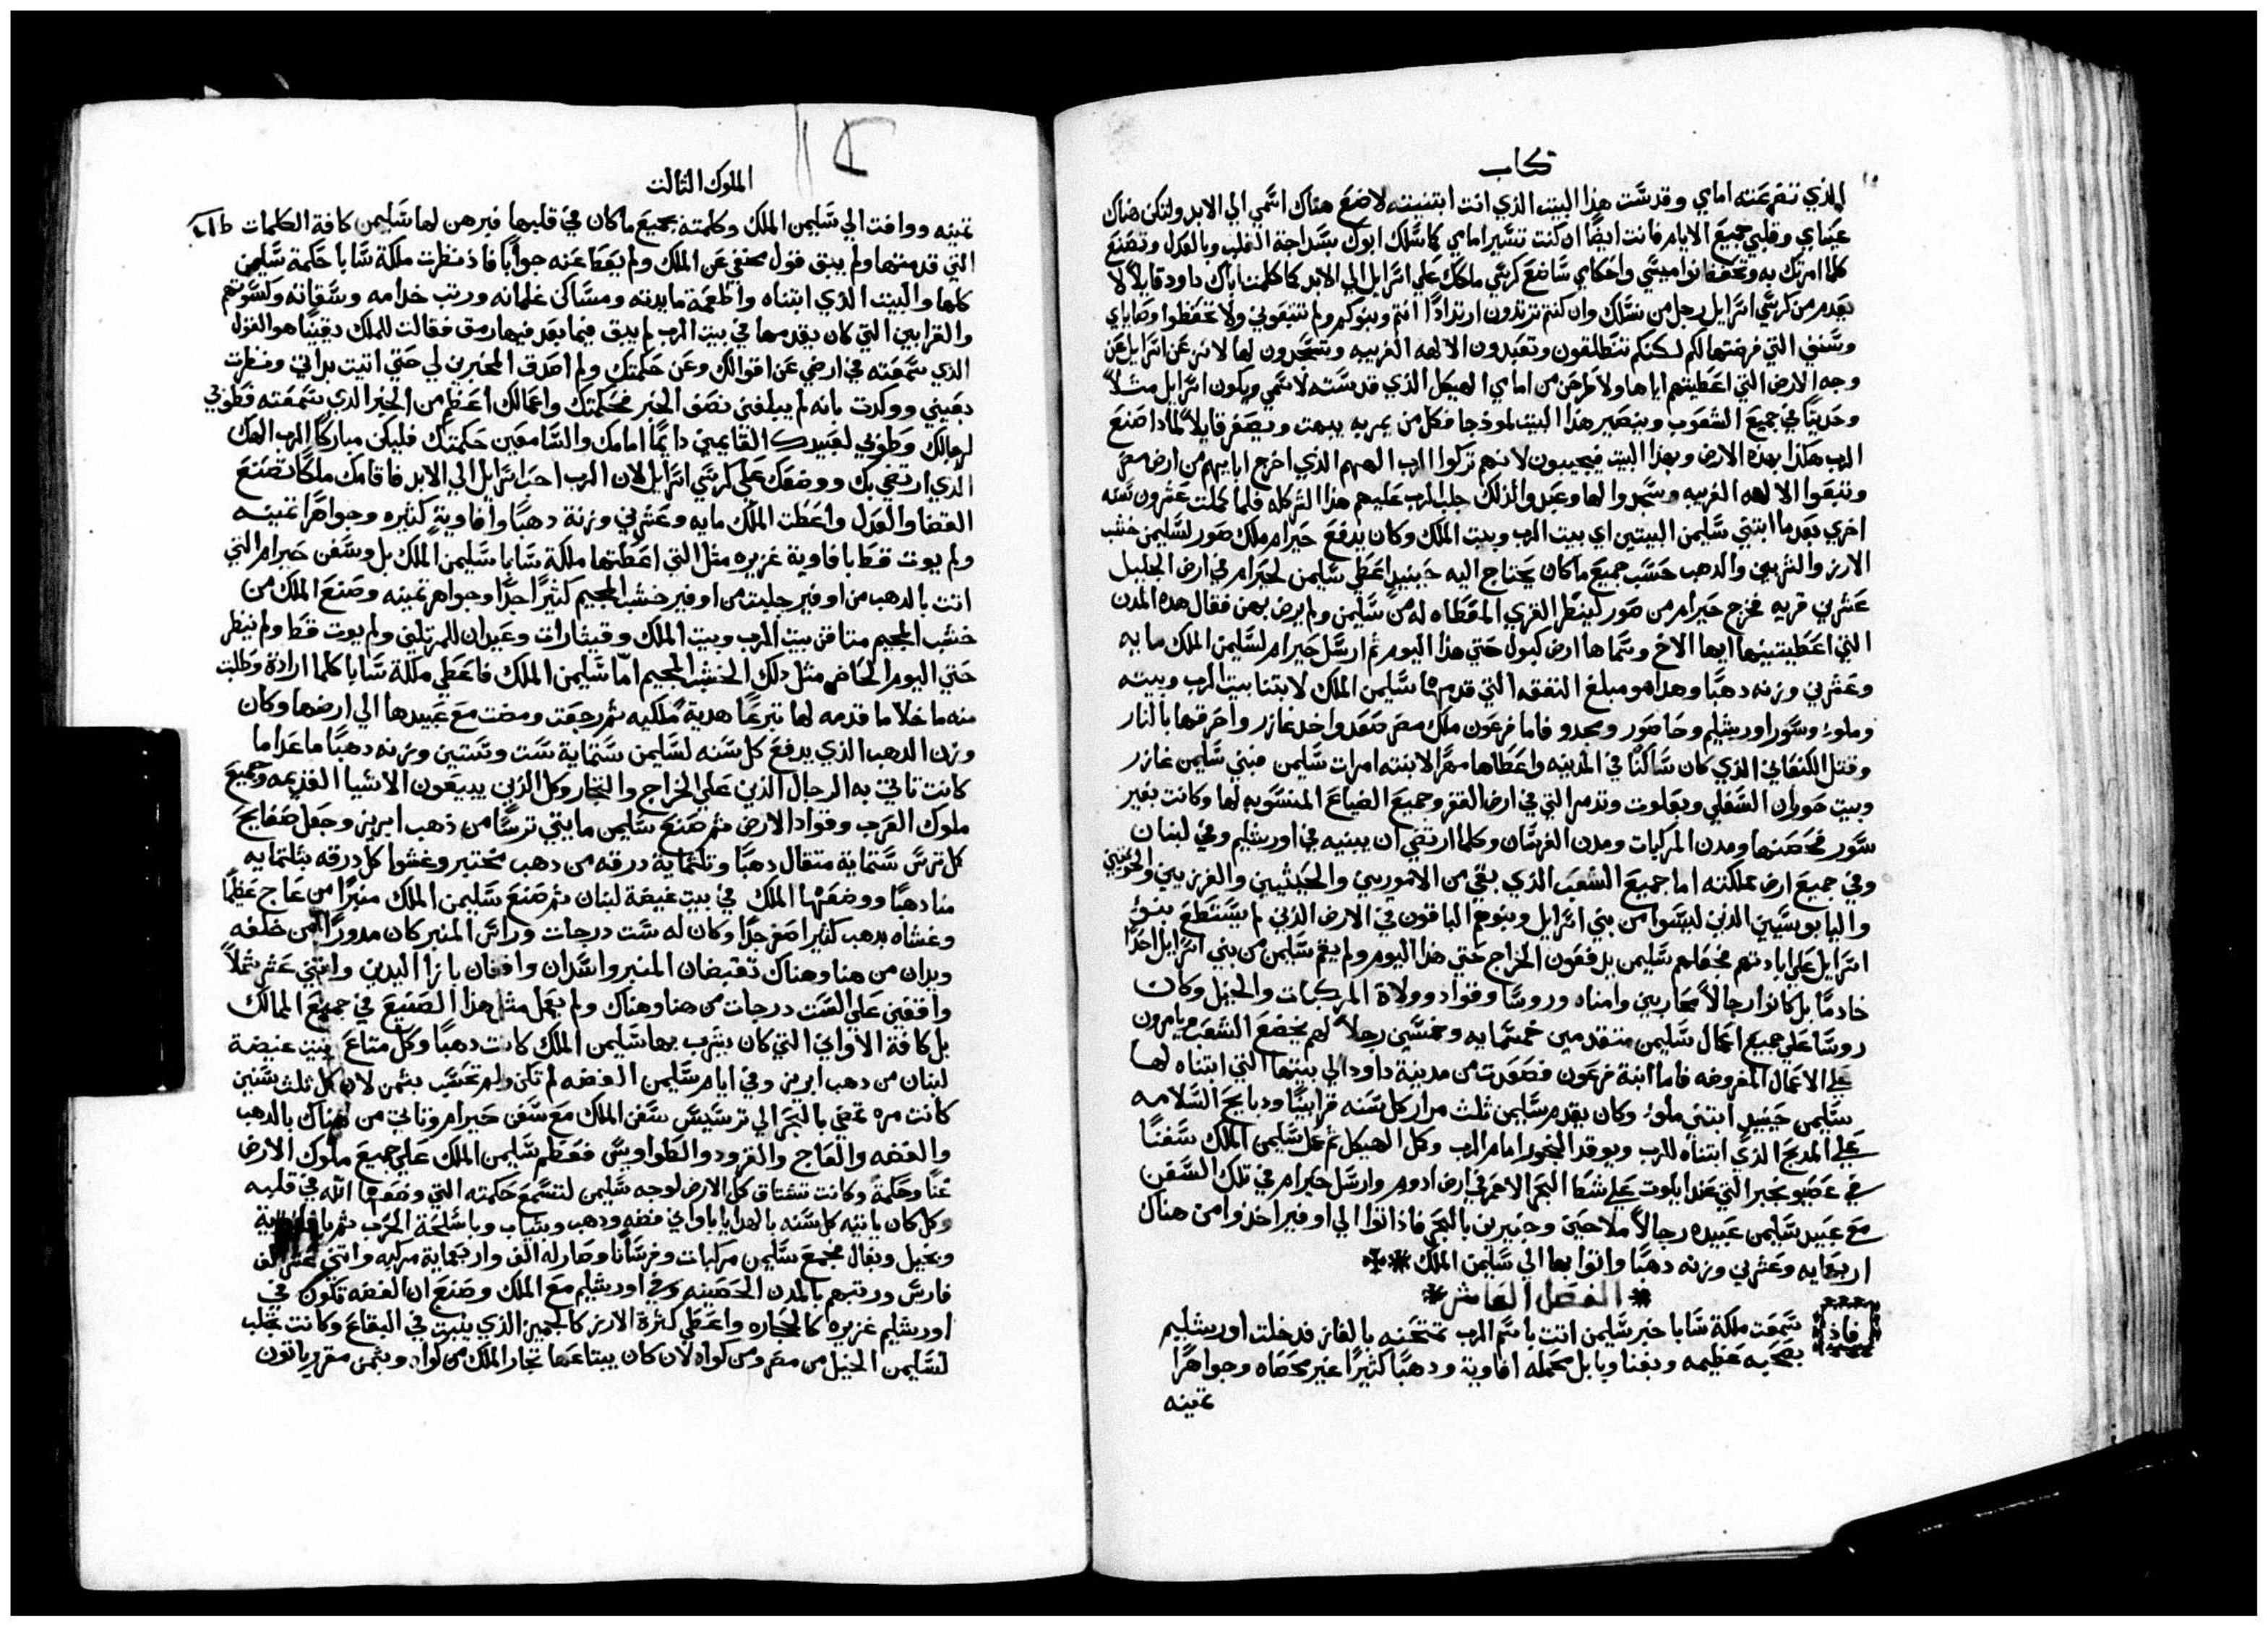 كتاب
الذي تضرعته امامي وقدست هذا البيت الذي انت ابتنيته لاضع هناك اسمي الي الابد ولتكن هناك
عيناي وقلبي جميع الايام فانت ايضًا ان كنت تسير امامي كما سلك ابوك بسداجة القلب وبالعدل وتصنع
كلما امرتك به وتحفظ نواميسي واحكامي ساضع كرسي ملكك علي اسرايل الي الابد كما كلمت اباك داود قايلاً لا
يعدم من كرسي اسرايل رجل من نسلك وان كنتم ترتدون ارتدادًا انتم وبنوكم ولم تتبعوني ولا تحفظوا وصاياي
وسنني التي فرضتها لكم لكنكم تنطلقون وتعبدون الالهه الغريبه وتسجدون لها لانزعن اسرايل عن
وجه الارض التي اعطيتهم اياها ولاطرحن من امامي الهيكل الذي قدسته لاسمي ويكون اسرايل مثلاً
وحديثًا في جميع الشعوب ويصير هذا البيت نموذجا فكل من يمر به يبهت ويصفر قايلاً لماذا صنع
الرب هكذا بهذه الارض وبهذا البيت فيجيبون لانهم تركوا الرب الههم الذي اخرج اباييهم من ارض مصر
وتبعوا الالهه الغريبه وسجدوا لها وعبدوا لذلك جلب الرب عليهم هذا الشر كله فلما كملت عشرون سنه
اخري بعدما ابتني سليمن البيتين اي بيت الرب وبيت الملك وكان يدفع حيرام ملك صور لسليمن خشب
الارز والشربين والدهب حسب جميع ما كان يحتاج اليه حينيد اعطي سليمن لحيرام في ارض الجليل
عشرين قريه فخرج حيرام من صور لينظر القري المعطاه له من سليمن ولم يرض بهن فقال هده المدن
التي اعطيتنيها ايها الاخ وسماها ارض كبول حتي هذا اليوم ثم ارسل حيرام لسليمن الملك مايه
وعشرين وزنه دهبًا وهدا هو مبلغ النفقه التي قدمها سليمن الملك لابتنا بيت الرب وبيته
وملوُ وسور اورشليم وحاصور ومجدو فاما فرعون ملك مصر صعد واخد غازر واحرقها بالنار
وقتل الكنعاني الذي كان ساكنًا في المدينه واعطاها مهرًا لابنته امرات سليمن فبني سليمن غازر
وبيت حوران السفلي وبعلوت وتدمر التي في ارض القفر وجميع الضياع المنسوبه لها وكانت بغير
سور فحصنها ومدن المركبات ومدن الفرسان وكلما ارتضي ان يبنيه في اورشليم وفي لبنان
وفي جميع ارض مملكته اما جميع الشعب الذي بقي من الاموريين والحيثيين والفرزيين والحوييين
واليابوسيين الدين ليسوا من بني اسرايل وبنوهم الباقون في الارض الذين لم يستطع بنو
اسرايل علي ابادتهم فجعلهم سليمن يدفعون الخراج حتي هذا اليوم ولم يقم سليمن من بني اسرايل احدًا
خادمًا بل كانوا رجالاً محاربين وامناه وروسا وقواد وولاة المركبات والخيل وكان
روسا علي جميع اعمال سليمن متقدمين خمسمايه وخمسين رجلاً لهم يخضع الشعب ويامرون
علي الاعمال المفروضه فاما ابنة فرعون فصعدت من مدينة داود الي بيتها التي ابتناه لها
سليمن حينيد ابتني ملوُ وكان يقدم سليمن ثلث مرار كل سنه قرابينًا ودبايح السلامه
علي المدبح الذي ابتناه للرب ويوقد البخور امام الرب وكمل الهيكل ثم عمل سليمن الملك سفنًا
في عصيو نجبر التي عند ايلوت علي شط البحر الاحمر في ارض ادوم وارسل حيرام في تلك السفن
مع عبيد سليمن عبيده رجالاً ملاحين وخبيرين بالبحر فاذ اتوا الي اوفير اخذوا من هناك
اربعمايه وعشرين وزنه دهبًا واتوا بها الي سليمن الملك
الفصل العاشر
فاذ سمعت ملكة سابا خبر سليمن اتت باسم الرب تمتحنه بالغاز فدخلت اورشليم
بصحبه عظيمه وبغنا وبابل محمله افاوية ودهبًا كثيرًا غير محصاه وجواهرًا
تمينه
الملوك الثالت
تمينه ووافت الي سليمن الملك وكلمته بجميع ما كان في قلبها فبرهن لها سليمن كافة الكلمات
التي قدمتها ولم يبق قول مخفي عن الملك ولم يعطا عنه جوابًا فاذ نظرت ملكة سابا حكمة سليمن
كلها والبيت الذي ابتناه واطعمة مايدته ومساكن غلمانه ورتب خدامه وسقاته وكسوتهم
والقرابين التي كان يقدمها في بيت الرب لم يبق فيما بعد فيها رمق فقالت للملك يقينًا هو القول
الذي سمعته في ارضي عن اقوالك وعن حكمتك ولم اصدق المخبرين لي حتي اتيت بداتي ونظرت
بعيني ووكدت بانه لم يبلغني نصف الخبر فحكمتك واعمالك اعظم من الخبر الذي سمعته فطوبي
لرجالك وطوبي لعبيدك القايمين دايمًا امامك والسامعين حكمتك فليكن مباركًا الرب الهك
الذي ارتضي بك ووضعك علي كرسي اسرايل لان الرب احب اسرايل الي الابد فاقامك ملكًا لتصنع
القضا والعدل واعطت الملك مايه وعشرين وزنة دهبًا وافاوية كثيره وجواهرًا تمينه
ولم يوت قط بافاوية غزيره مثل التي اعطتها ملكة سابا سليمن الملك بل وسفن حيرام التي
اتت بالدهب من اوفير جلبت من اوفير خشب الجيم كثيرًا جدًا وجواهر تمينه وصنع الملك من
خشب الجيم متاقن بيت الرب وبيت الملك وقيثارات وعيدان للمرتلين ولم يوت قط ولم ينظر
حتي اليوم الحاضر مثل دلك الخشب الجيم امّا سليمن الملك فاعطي ملكة سابا كلما ارادة وطلبت
منه ما خلا ما قدمه لها تبرعًا هدية ملكيه ثم رجعت ومضت مع عبيدها الي ارضها وكان
وزن الدهب الذي يدفع كل سنه لسليمن ستماية ست وستين وزنه دهبًا ما عدا ما
كانت تاتي به الرجال الذين علي الخراج والتجار وكل الذين يبيعون الاشيا القديمه وجميع
ملوك العرب وقواد الارض ثم صنع سليمن مايتي ترسًا من ذهب ابريز وجعل صفايح
كل ترس ستماية متقال دهبًا وتلثماية درقه من دهب مختبر وغشوا كل درقه بثلثمايه
منا دهبًا ووضعها الملك في بيت غيضة لبنان ثم صنع سليمن الملك منبرًا من عاج عظيمًا
وغشاه بدهب كثير اصفر جدًا وكان له ست درجات وراس المنبر كان مدورًا من خلفه
ويدان من هنا وهناك تقبضان المنبر واسدان واقفان بازا اليدين واتني عشر شبلاً
واقفين علي الست درجات من هنا وهناك ولم يعمل مثل هذا الصنيع في جميع الممالك
بل كافة الاواني التي كان يشرب بها سليمن الملك كانت دهبًا وكل متاع بيت غيضة
لبنان من دهب ابريز وفي ايام سليمن الفضه لم تكن ولم تحسب بثمن لان كل ثلث سنين
كانت مره تمضي بالبحر الي ترسيس سفن الملك مع سفن حيرام وتاتي من هناك بالدهب
والفضه والعاج والقرود والطواويس فعظم سليمن الملك علي جميع ملوك الارض
غنًا وحكمةً وكانت تشتاق كل الارض لوجه سليمن لتسمع حكمته التي وضعها الله في قلبه
وكل كان ياتيه كل سنه بالهدايا باواني فضه ودهب وثياب وباسلحة الحرب ثم بافاوية
وبخيل وبغال فجمع سليمن مركبات وفرسانًا وصار له الف واربعماية مركبه واتني عشر الف
فارس ورتبهم بالمدن الحصينه وفي اورشليم مع الملك وصنع ان الفضه تكون في
اورشليم غزيره كالحجاره واعطي كثرة الارز كالجميز الذي ينبت في البقاع وكانت تجلب
لسليمن الخيل من مصر ومن كواه لان كان يبتاعها تجار الملك من كواه وبثمن مقرر ياتون